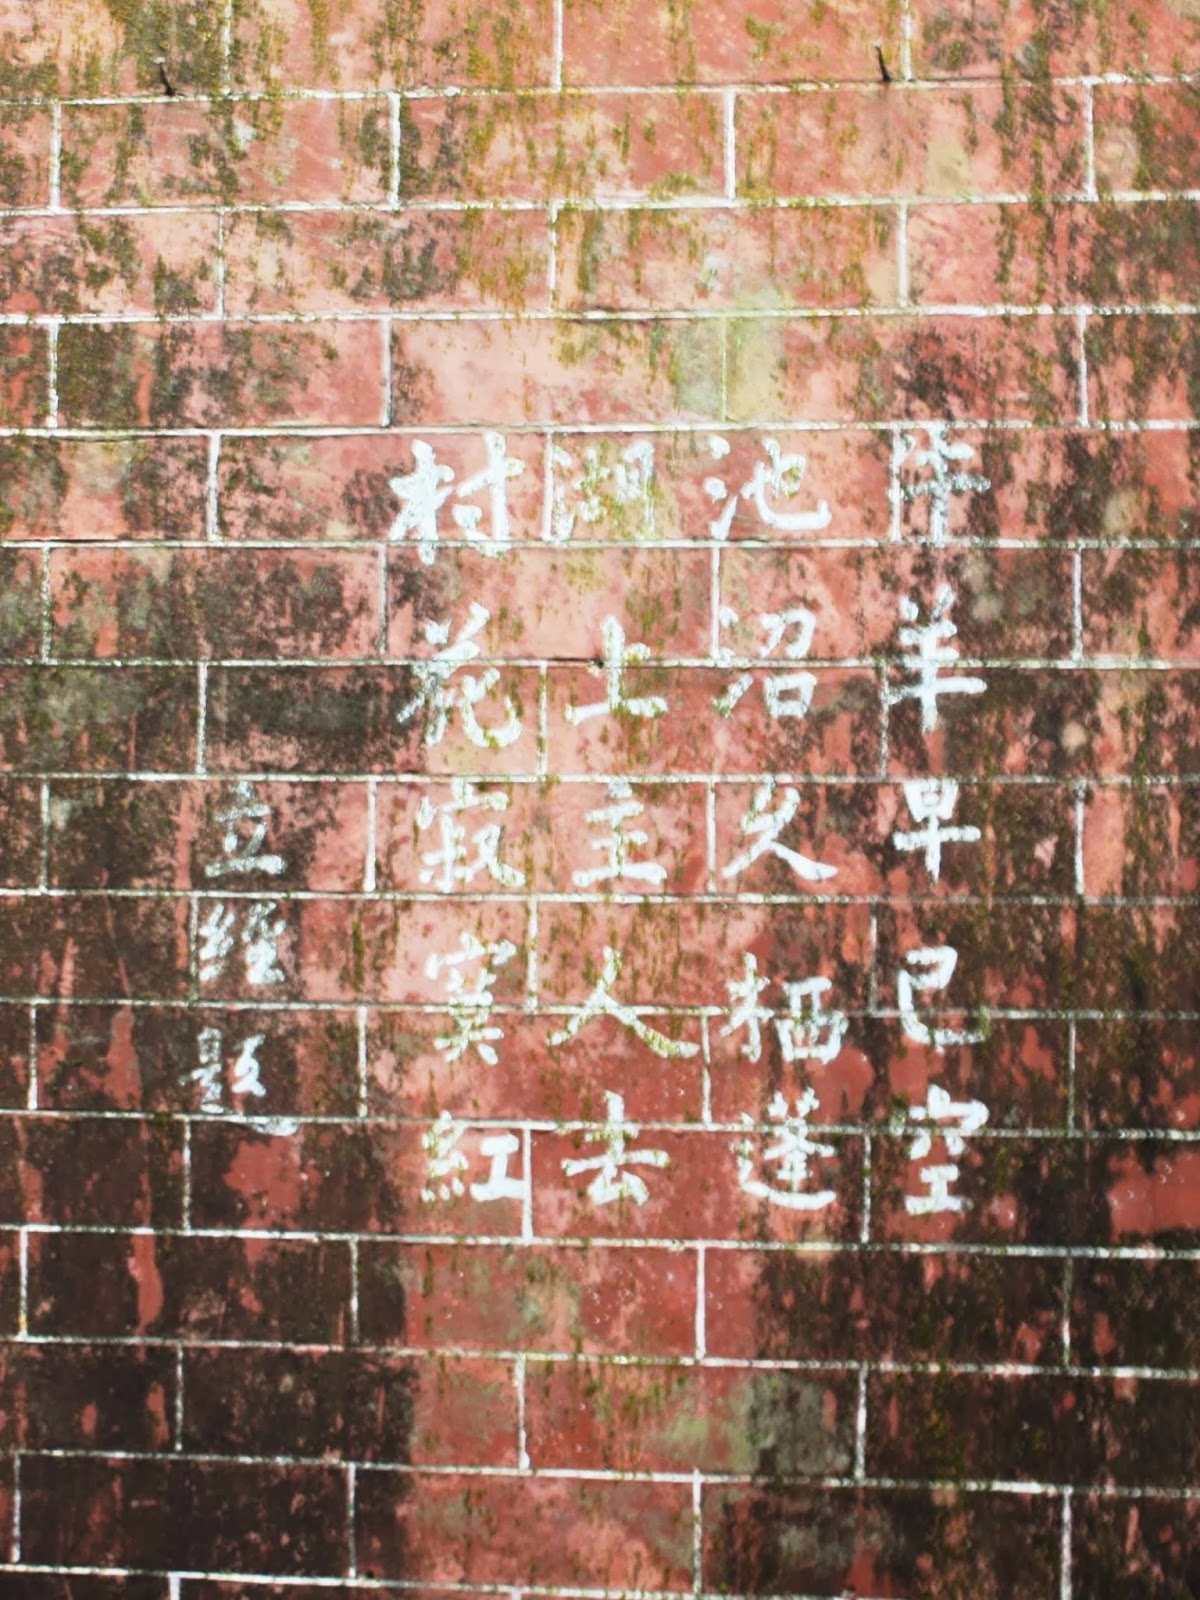 牛羊早已空
池沼久栖蓬
湖上主人去
村花寂寞紅
立經題